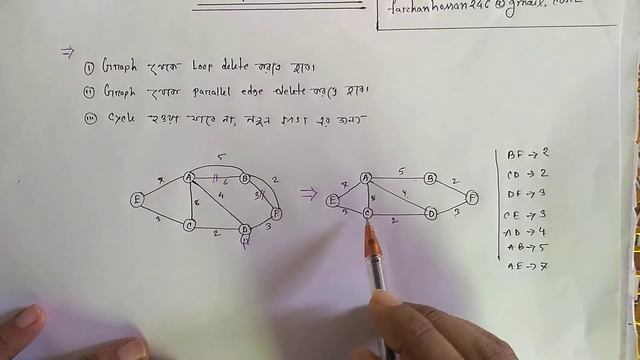 farhanhossan246@gmail.com
⇒
(i) Graph থেকে Loop delete করতে হবে।
(ii) Graph থেকে parallel edge delete করতে হবে।
(iii) Cycle হওয়া যাবে না, নতুন
5
A 6 B 2
7 8 4 3
E F
3 C 2 D 3
⇒
A 5 B
7 8 4 2
E F
3 C 2 D 3
BF→2
CD→2
DF→3
CE→3
AD→4
AB→5
AE→7